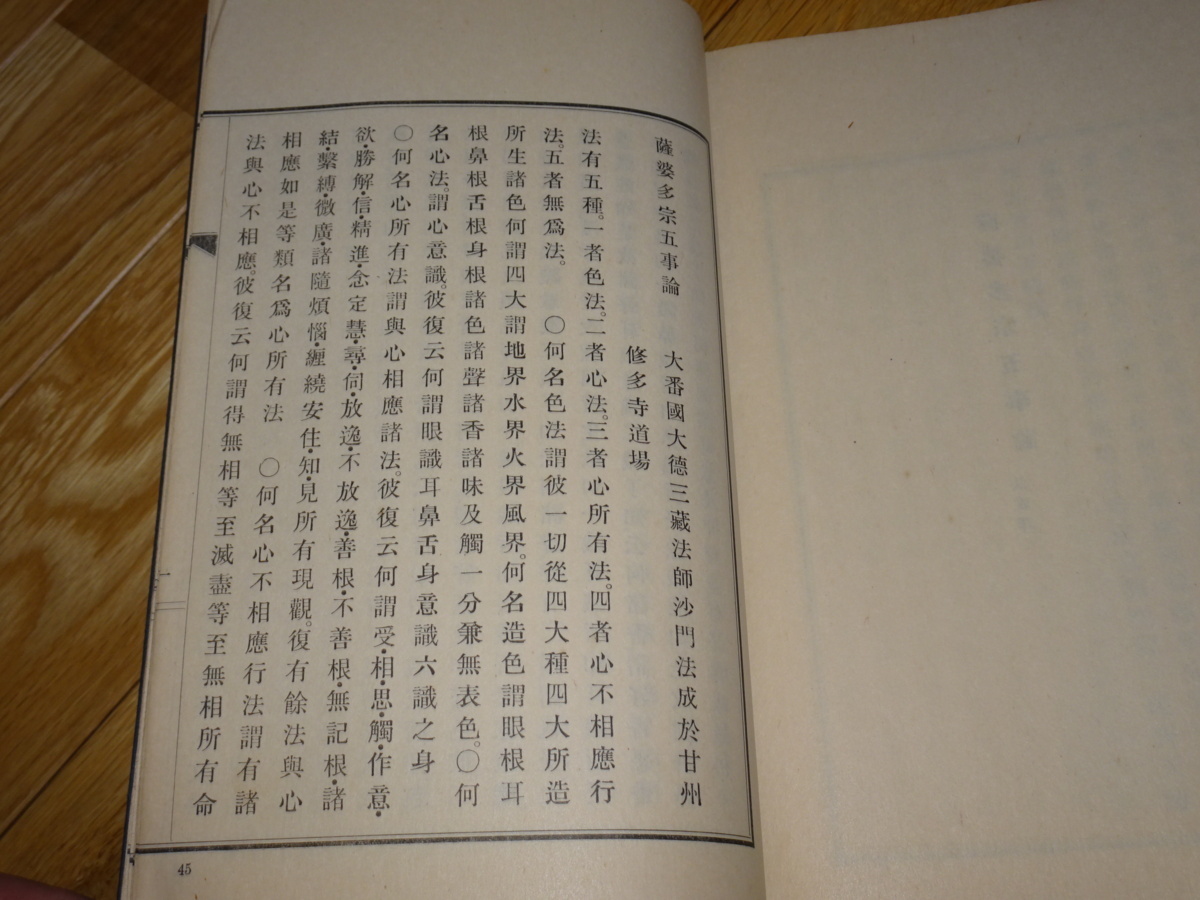 薩婆多宗五事論
大番國大德三藏法師沙門法成於甘州
修多寺道場
法有五種。一者色法。二者心法。三者心所有法。四者心不相應行
法。五者無爲法。 〇何名色法謂彼一切從四大種四大所造
所生諸色何謂四大謂地界水界火界風界。何名造色謂眼根耳
根鼻根舌根身根諸色諸聲諸香諸味及觸一分兼無表色。〇何
名心法。謂心意識。彼復云何謂眼識耳鼻舌身意識六識之身
〇何名心所有法謂與心相應諸法。彼復云何謂受・相・思・觸・作意・
欲・勝解・信・精進・念定慧・尋・伺・放逸・不放逸・善根・不善根・無記根・諸
結・繫縛・微廣・諸隨煩惱・纏繞安住・知・見所有現觀。復有餘法與心
相應如是等類名爲心所有法 〇何名心不相應行法謂有諸
法與心不相應。彼復云何謂得無相等至滅盡等至無相所有命
一
45